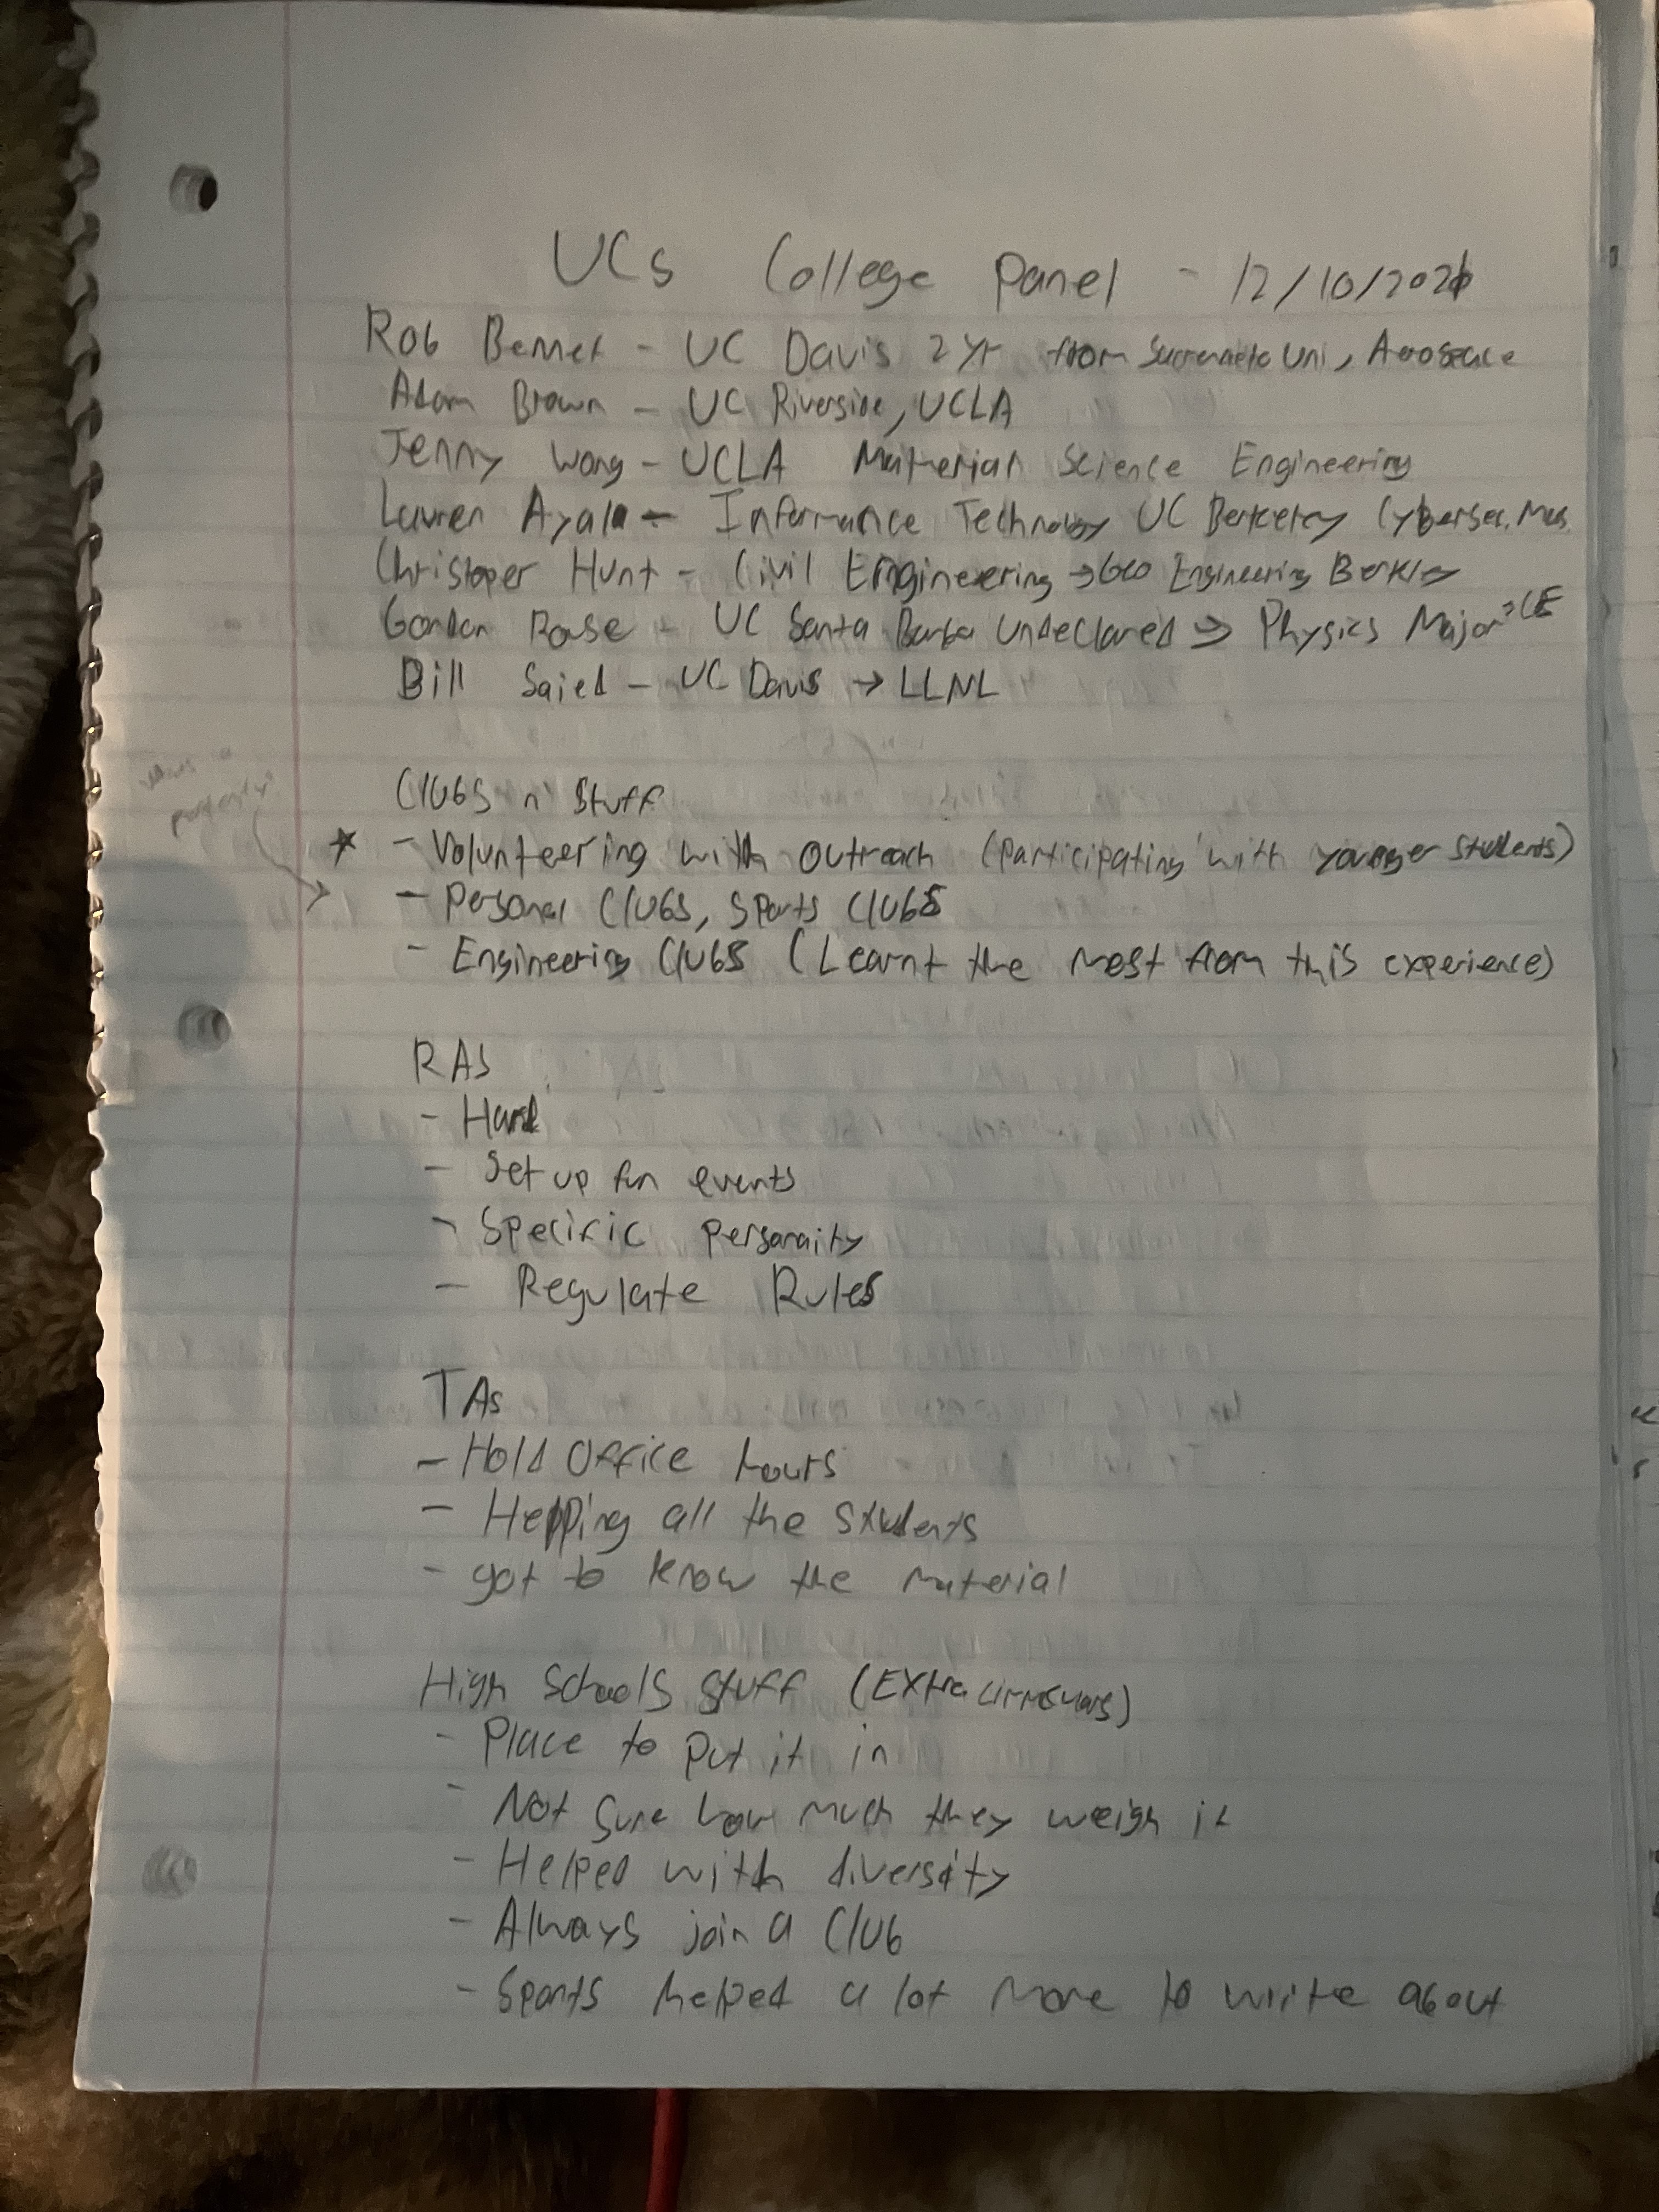 UCs College Panel - 12/10/2021
Rob Bennet - UC Davis 2 yr from Uni, Aerospace
Adam Brown - UC Riverside, UCLA
Jenny Wong - UCLA Material Science Engineering
Lauren Ayala - Informance Technology UC Berkeley Cybersec.
Christoper Hunt - Civil Engineering → Geo Engineering
Gordon Rouse - UC Santa Undeclared → Physics Major → CE
Bill Saied - UC Davis → LLNL
Clubs n' Stuff
★ - Volunteering with outreach (participating with younger students)
→ - Personal Clubs, Sports Clubs
- Engineering Clubs (Learnt the most from this experience)
RAs
- Hard
- Set up fun events
- Specific
- Regulate Rules
TAs
- Hold Office hours
- Helping all the students
- got to know the material
High Schools Stuff
- Place to put it in
- Not sure how much they weigh it
- Helped with diversity
- Always join a Club
- Sports helped a lot more to write about